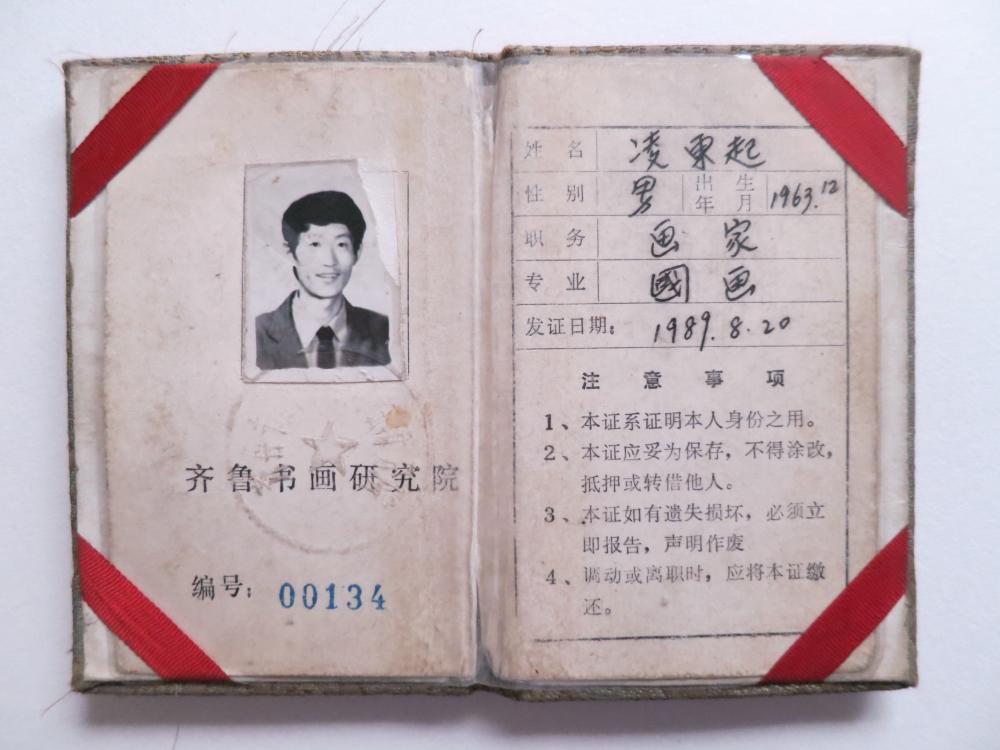 齐鲁书画研究院
编号：00134
姓名 凌東起
性别 男 出生年月 1963.12
职务 画家
专业 國画
发证日期：1989.8.20
注意事项
1、本证系证明本人身份之用。
2、本证应妥为保存，不得涂改，
抵押或转借他人。
3、本证如有遗失损坏，必须立
即报告，声明作废
4、调动或离职时，应将本证缴
还。